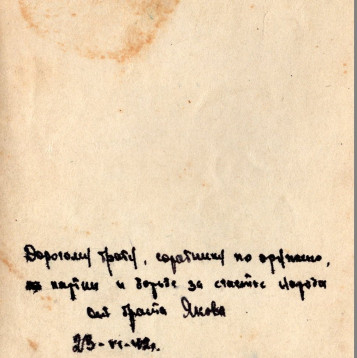 Дорогому брату, соратнику по оружию,
партии и борьбе за счастье народа
от брата Якова